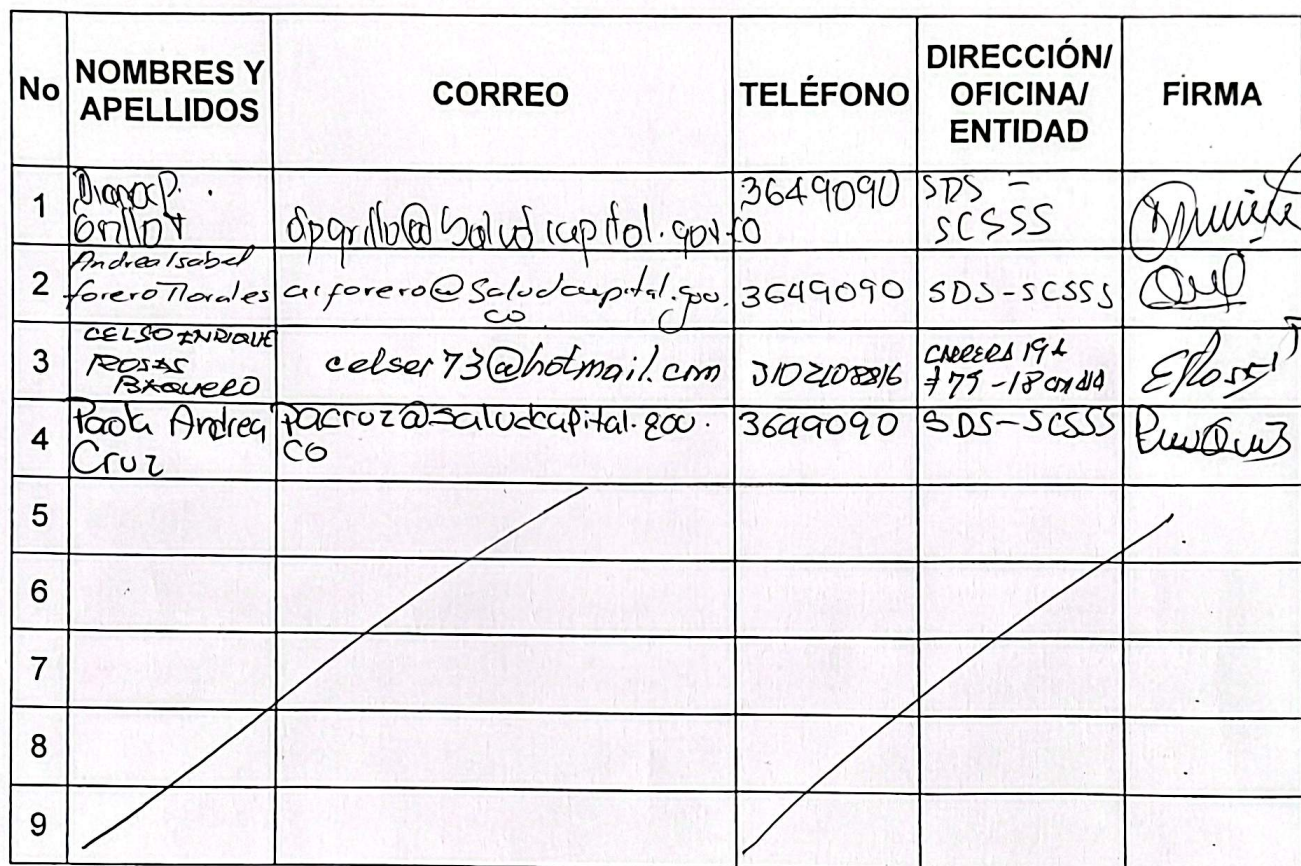 No NOMBRES Y APELLIDOS CORREO TELÉFONO DIRECCIÓN/ OFICINA/ ENTIDAD FIRMA
1 Diana P. Grillo T dpgrillo@saludcapital.gov.co 3649090 SDS - SCSSS
2 Andrea Isabel Forero Morales aiforero@saludcapital.gov.co 3649090 SDS-SCSSS
3 CELSO ENRIQUE ROSAS BAQUERO celser73@hotmail.com 3102108816 CARRERA 19A #75-18
4 Paola Andrea Cruz pacruz@saludcapital.gov.co 3649090 SDS-SCSSS
5
6
7
8
9